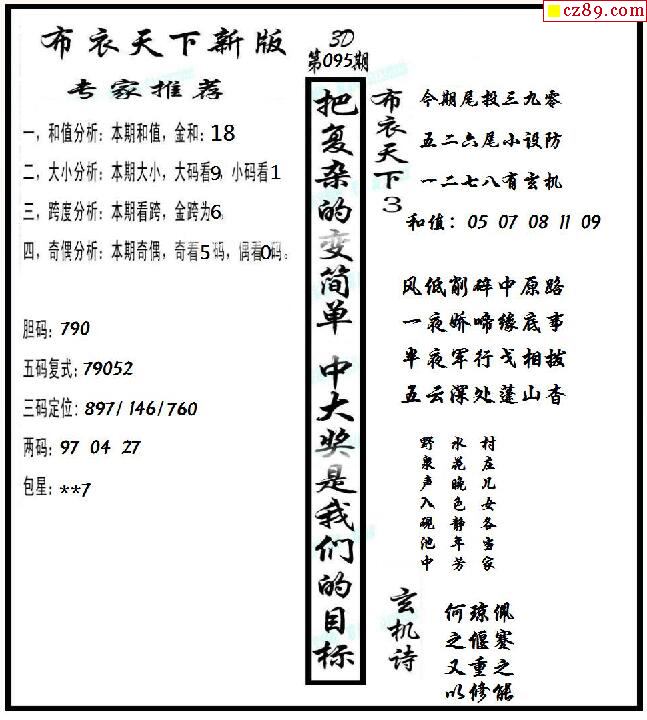 cz89.com
布衣天下新版
专家推荐
3D
第095期
一，和值分析：本期和值，金和：18
二，大小分析：本期大小，大码看9，小码看1
三，跨度分析：本期看跨，金跨为6，
四，奇偶分析：本期奇偶，奇看5码，偶看0码。
胆码：790
五码复式：79052
三码定位：897/146/760
两码：97 04 27
包星：**7
把复杂的变简单 中大奖是我们的目标
布衣天下3
今期尾投三九零
五二六尾小设防
一二七八有玄机
和值：05 07 08 11 09
风低削碎中原路
一夜娇啼缘底事
半夜军行戈相拨
五云深处蓬山杳
村庄儿女各当家
水花晚色静年芳
野泉声入砚池中
玄机诗
何琼佩
之偃蹇
又重之
以修能